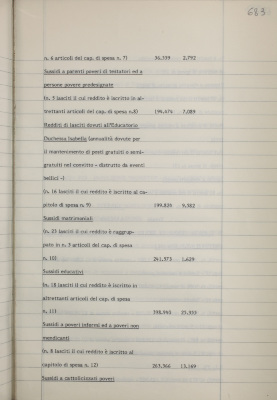 683.
n. 6 articoli del cap. di spesa n. 7) 36,599 2,792
Sussidi a parenti poveri di testatori ed a
persone povere predesignate
(n. 5 lasciti il cui reddito è iscritto in al-
trettanti articoli del cap. di spesa n.8) 194,674 7,089
Redditi di lasciti dovuti all'Educatorio
Duchessa Isabella (annualità dovute per
il mantenimento di posti gratuiti o semi-
gratuiti nel convitto - distrutto da eventi
bellici -)
(n. 16 lasciti il cui reddito è iscritto al ca-
pitolo di spesa n. 9) 199,829 9,382
Sussidi matrimoniali
(n. 23 lasciti il cui reddito è raggrup-
pato in n. 9 articoli del cap. di spesa
n. 10) 241,573 1,629
Sussidi educativi
(n. 18 lasciti il cui reddito è iscritto in
altrettanti articoli del cap. di spesa
n. 11) 398,945 25,933
Sussidi a poveri infermi ed a poveri non
mendicanti
(n. 8 lasciti il cui reddito è iscritto al
capitolo di spesa n. 12) 263,366 13,169
Sussidi a cattolicizzati poveri